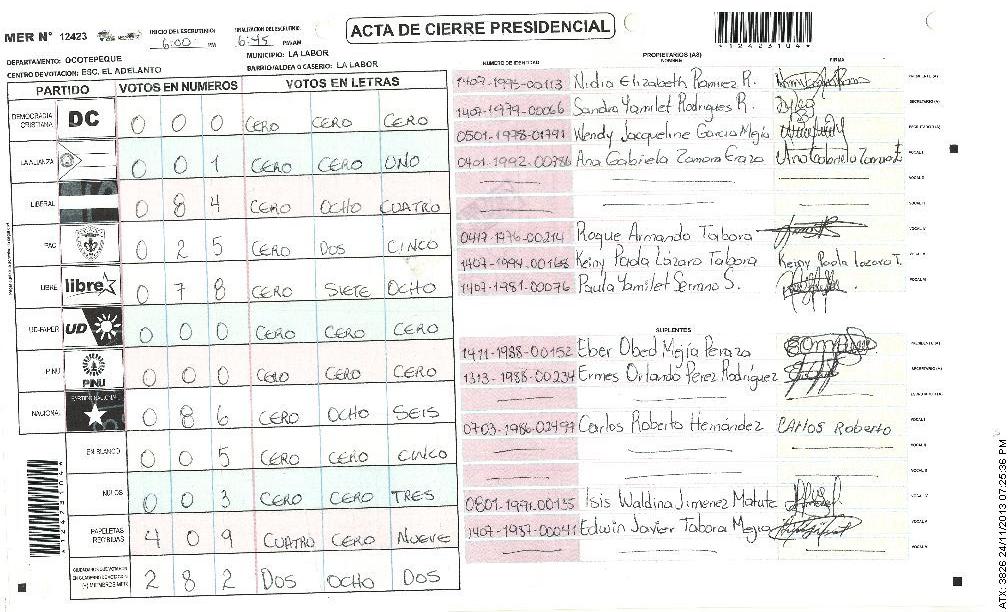 MER N° 12423
INICIO DEL ESCRUTINIO: 6:00 PM
FINALIZACION DEL ESCRUTINIO: 6:45 PM/AM
ACTA DE CIERRE PRESIDENCIAL
*12423104*
DEPARTAMENTO: OCOTEPEQUE
MUNICIPIO: LA LABOR
CENTRO DE VOTACION: ESC. EL ADELANTO
BARRIO/ALDEA O CASERIO: LA LABOR
PARTIDO VOTOS EN NUMEROS VOTOS EN LETRAS
DEMOCRACIA CRISTIANA DC 0 0 0 CERO CERO CERO
LA ALIANZA 0 0 1 CERO CERO UNO
LIBERAL 0 8 4 CERO OCHO CUATRO
PAC 0 2 5 CERO DOS CINCO
LIBRE libre 0 7 8 CERO SIETE OCHO
UD-FAPER UD 0 0 0 CERO CERO CERO
PINU PINU 0 0 0 CERO CERO CERO
NACIONAL PARTIDO NACIONAL 0 8 6 CERO OCHO SEIS
EN BLANCO 0 0 5 CERO CERO CINCO
NULOS 0 0 3 CERO CERO TRES
PAPELETAS RECIBIDAS 4 0 9 CUATRO CERO NUEVE
2 8 2 DOS OCHO DOS
*12423104*
PROPIETARIOS (AS)
NUMERO DE IDENTIDAD NOMBRE FIRMA
1407-1995-00113 Nidia Elizabeth Ramirez R. PRESIDENTE (A)
1407-1979-00066 Sandra Yamilet Rodrigues R. SECRETARIO (A)
0501-1978-01791 Wendy Jacqueline Garcia Mejia ESCRUTADOR (A)
0401-1992-00786 Ana Gabriela Zamora Erazo Ana Gabriela Zamora E VOCAL I
VOCAL II
VOCAL III
0417-1976-00214 Roque Armando Tabora VOCAL IV
1407-1994-00168 Keiny Paola Lázaro Tabora Keiny Paola Lazaro T. VOCAL V
1407-1981-00076 Paula Yamilet Serrano S. VOCAL VI
SUPLENTES
1411-1988-00152 Eber Obed Mejía Peraza PRESIDENTE (A)
1313-1988-00234 Ermes Orlando Perez Rodríguez SECRETARIO (A)
ESCRUTADOR (A)
0703-1986-02497 Carlos Roberto Hernández CARlos Roberto VOCAL I
VOCAL II
VOCAL III
0801-1991-00135 Isis Waldina Jimenez Matute VOCAL IV
1407-1987-00041 Edwin Javier Tabora Mejia VOCAL V
VOCAL VI
ATX: 3826 24/11/2013 07:25:36 PM